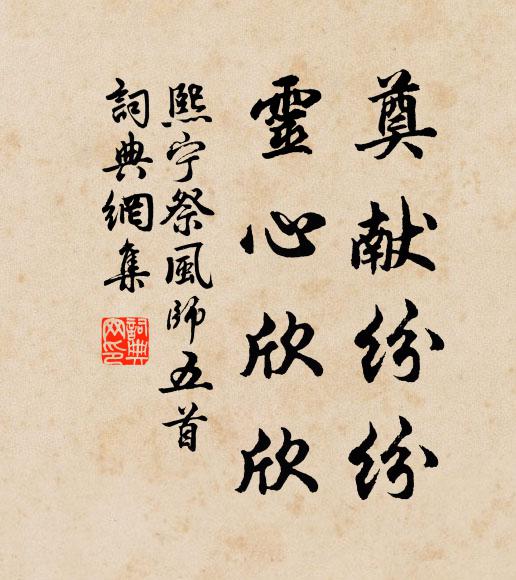 奠献纷纷
靈心欣欣
熙宁祭風师五首
詞典網集
詞典网印